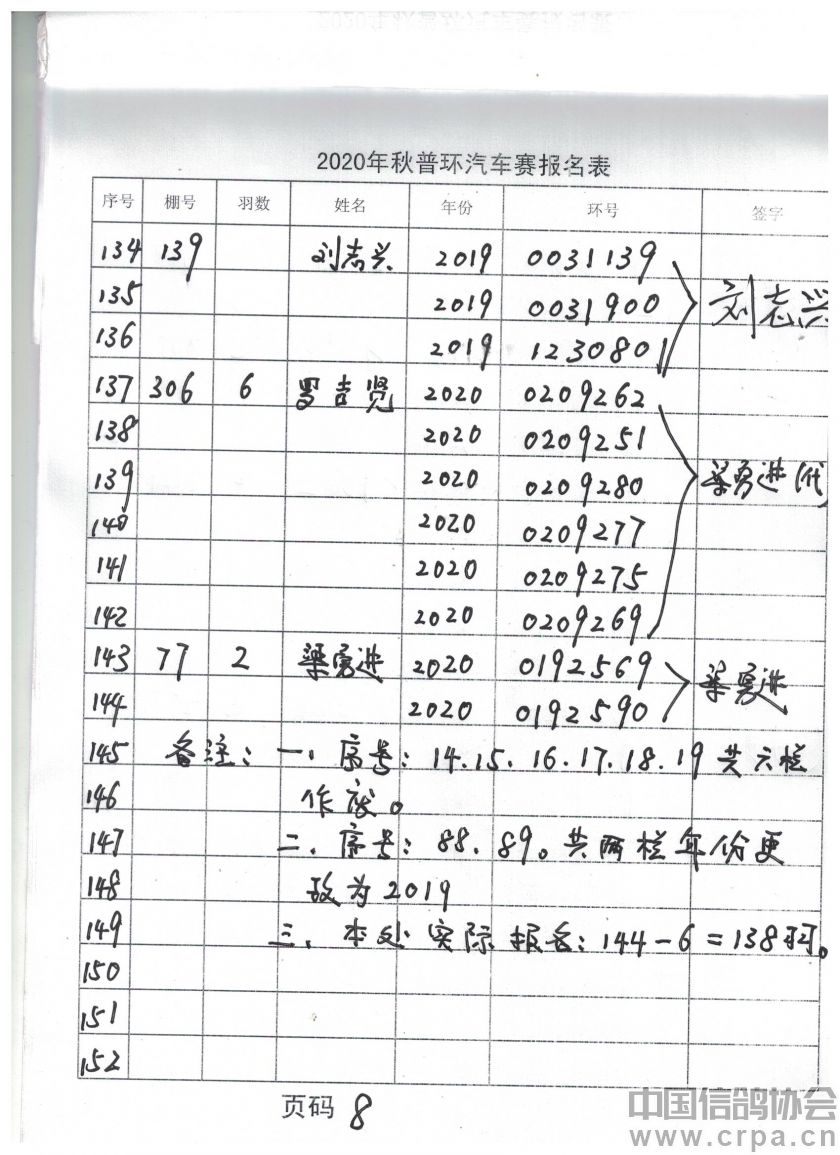 2020年秋普环汽车赛报名表
序号 棚号 羽数 姓名 年份 环号 签字
134 139 刘志兴 2019 0031139
135 2019 0031900 刘志兴
136 2019 1230801
137 306 6 罗吉贤 2020 0209262
138 2020 0209251
139 2020 0209280 梁勇进(代
140 2020 0209277
141 2020 0209275
142 2020 0209269
143 77 2 梁勇进 2020 0192569 梁勇进
144 2020 0192590
145 备注:一、序号:14.15.16.17.18.19共六栏
146 作废。
147 二、序号:88.89。共两栏年份更
148 改为2019
149 三、本处实际报名:144-6=138羽。
150
151
152
页码 8
中国信鸽协会
www.crpa.cn